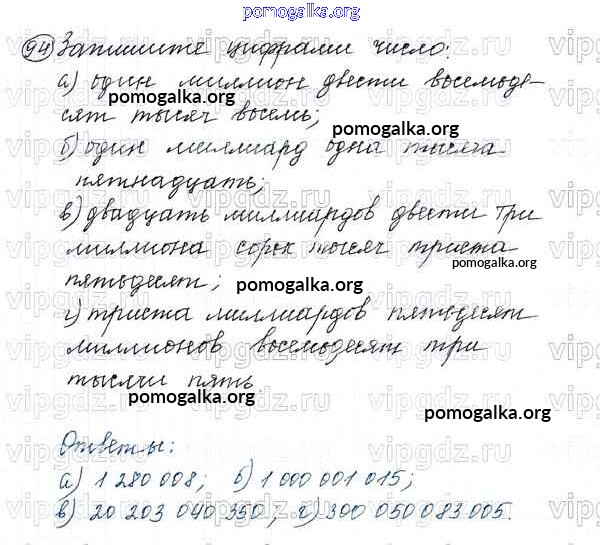 pomogalka.org
94 Запишите цифрами число:
а) один миллион двести восемьде-
pomogalka.org
сят тысяч восемь;
pomogalka.org
б) один миллиард одна тысяча
пятнадцать;
в) двадцать миллиардов двести три
миллиона сорок тысяч триста
pomogalka.org
пятьдесят;
pomogalka.org
г) триста миллиардов пятьдесят
миллионов восемьдесят три
тысячи пять.
pomogalka.org
Ответы:
а) 1 280 008; б) 1 000 001 015;
в) 20 203 040 350; г) 300 050 083 005.
vipgdz.ru